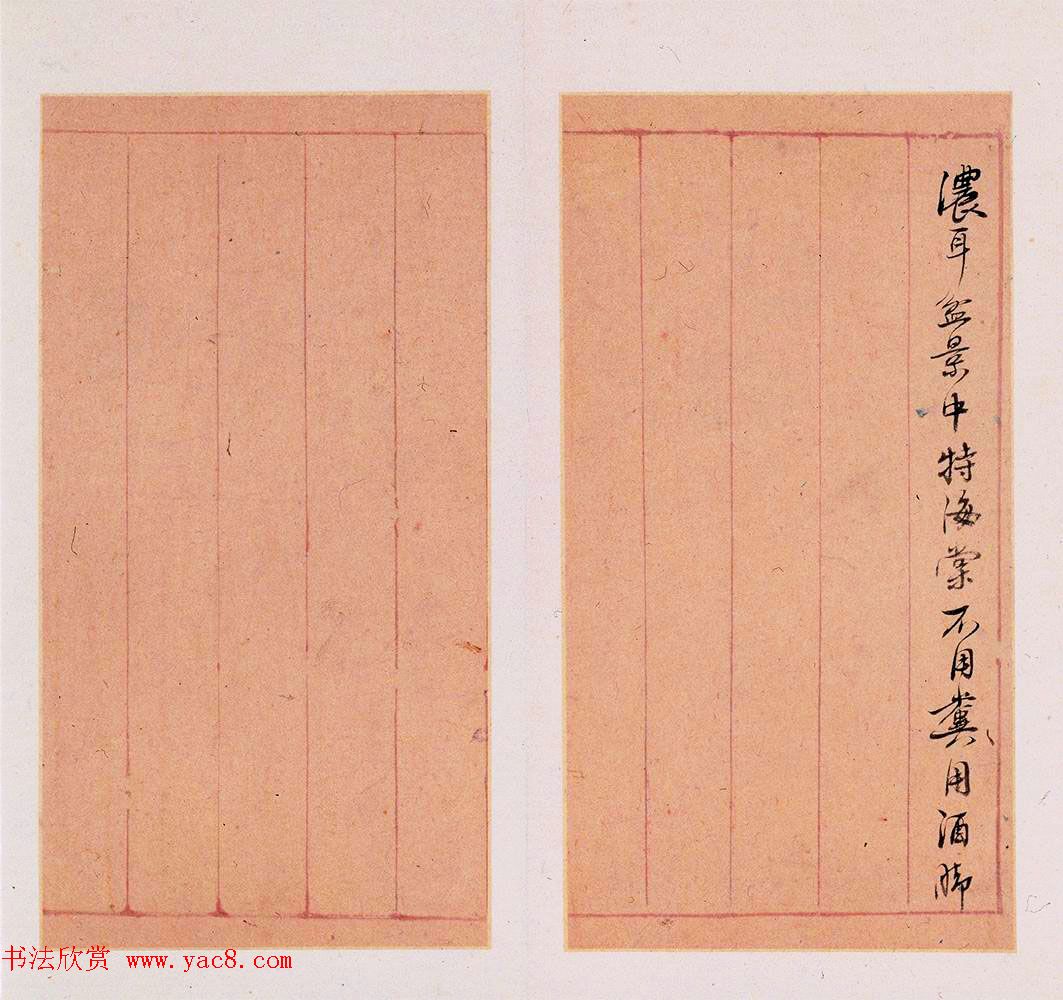 濃耳盆景中特海棠不用糞用酒脚
书法欣赏 www.yac8.com